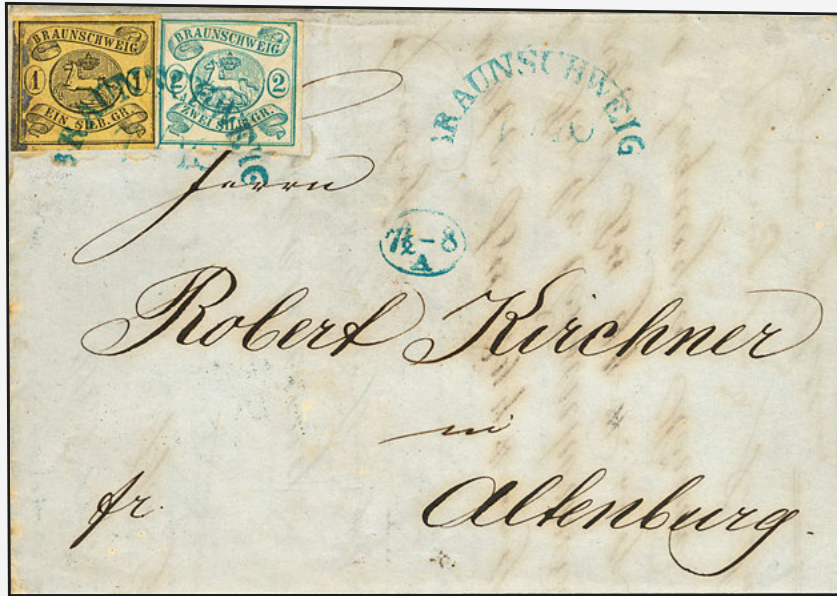 BRAUNSCHWEIG
1 1
EIN SILB. GR.
BRAUNSCHWEIG
2 2
ZWEI SILB. GR.
BRAUNSCHWEIG
BRAUNSCHWEIG
Herrn
7½-8
A
Robert Kirchner
in
fr. Altenburg.